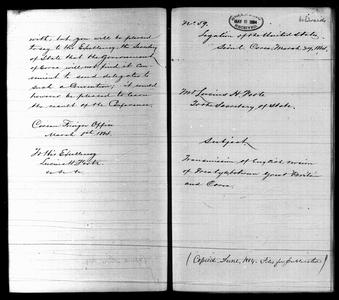 with, but you will be pleased
to say to His Excellency, the Secretary
of State that the Government
of Corea will not find it con-
venient to send delegates to
such a Convention; it would
however be pleased to learn
the result of the Conference.
Corean Foreign Office
March 1884.
To His Excellency
Lucius H. Foote
No. 59.
Legation of the United States,
Seoul, Corea, March 29, 1884.
Mr Lucius H. Foote
to the Secretary of State.
Subject
Transmission of English version
of
and Corea.
(Copied June, 1884, Files for publication)